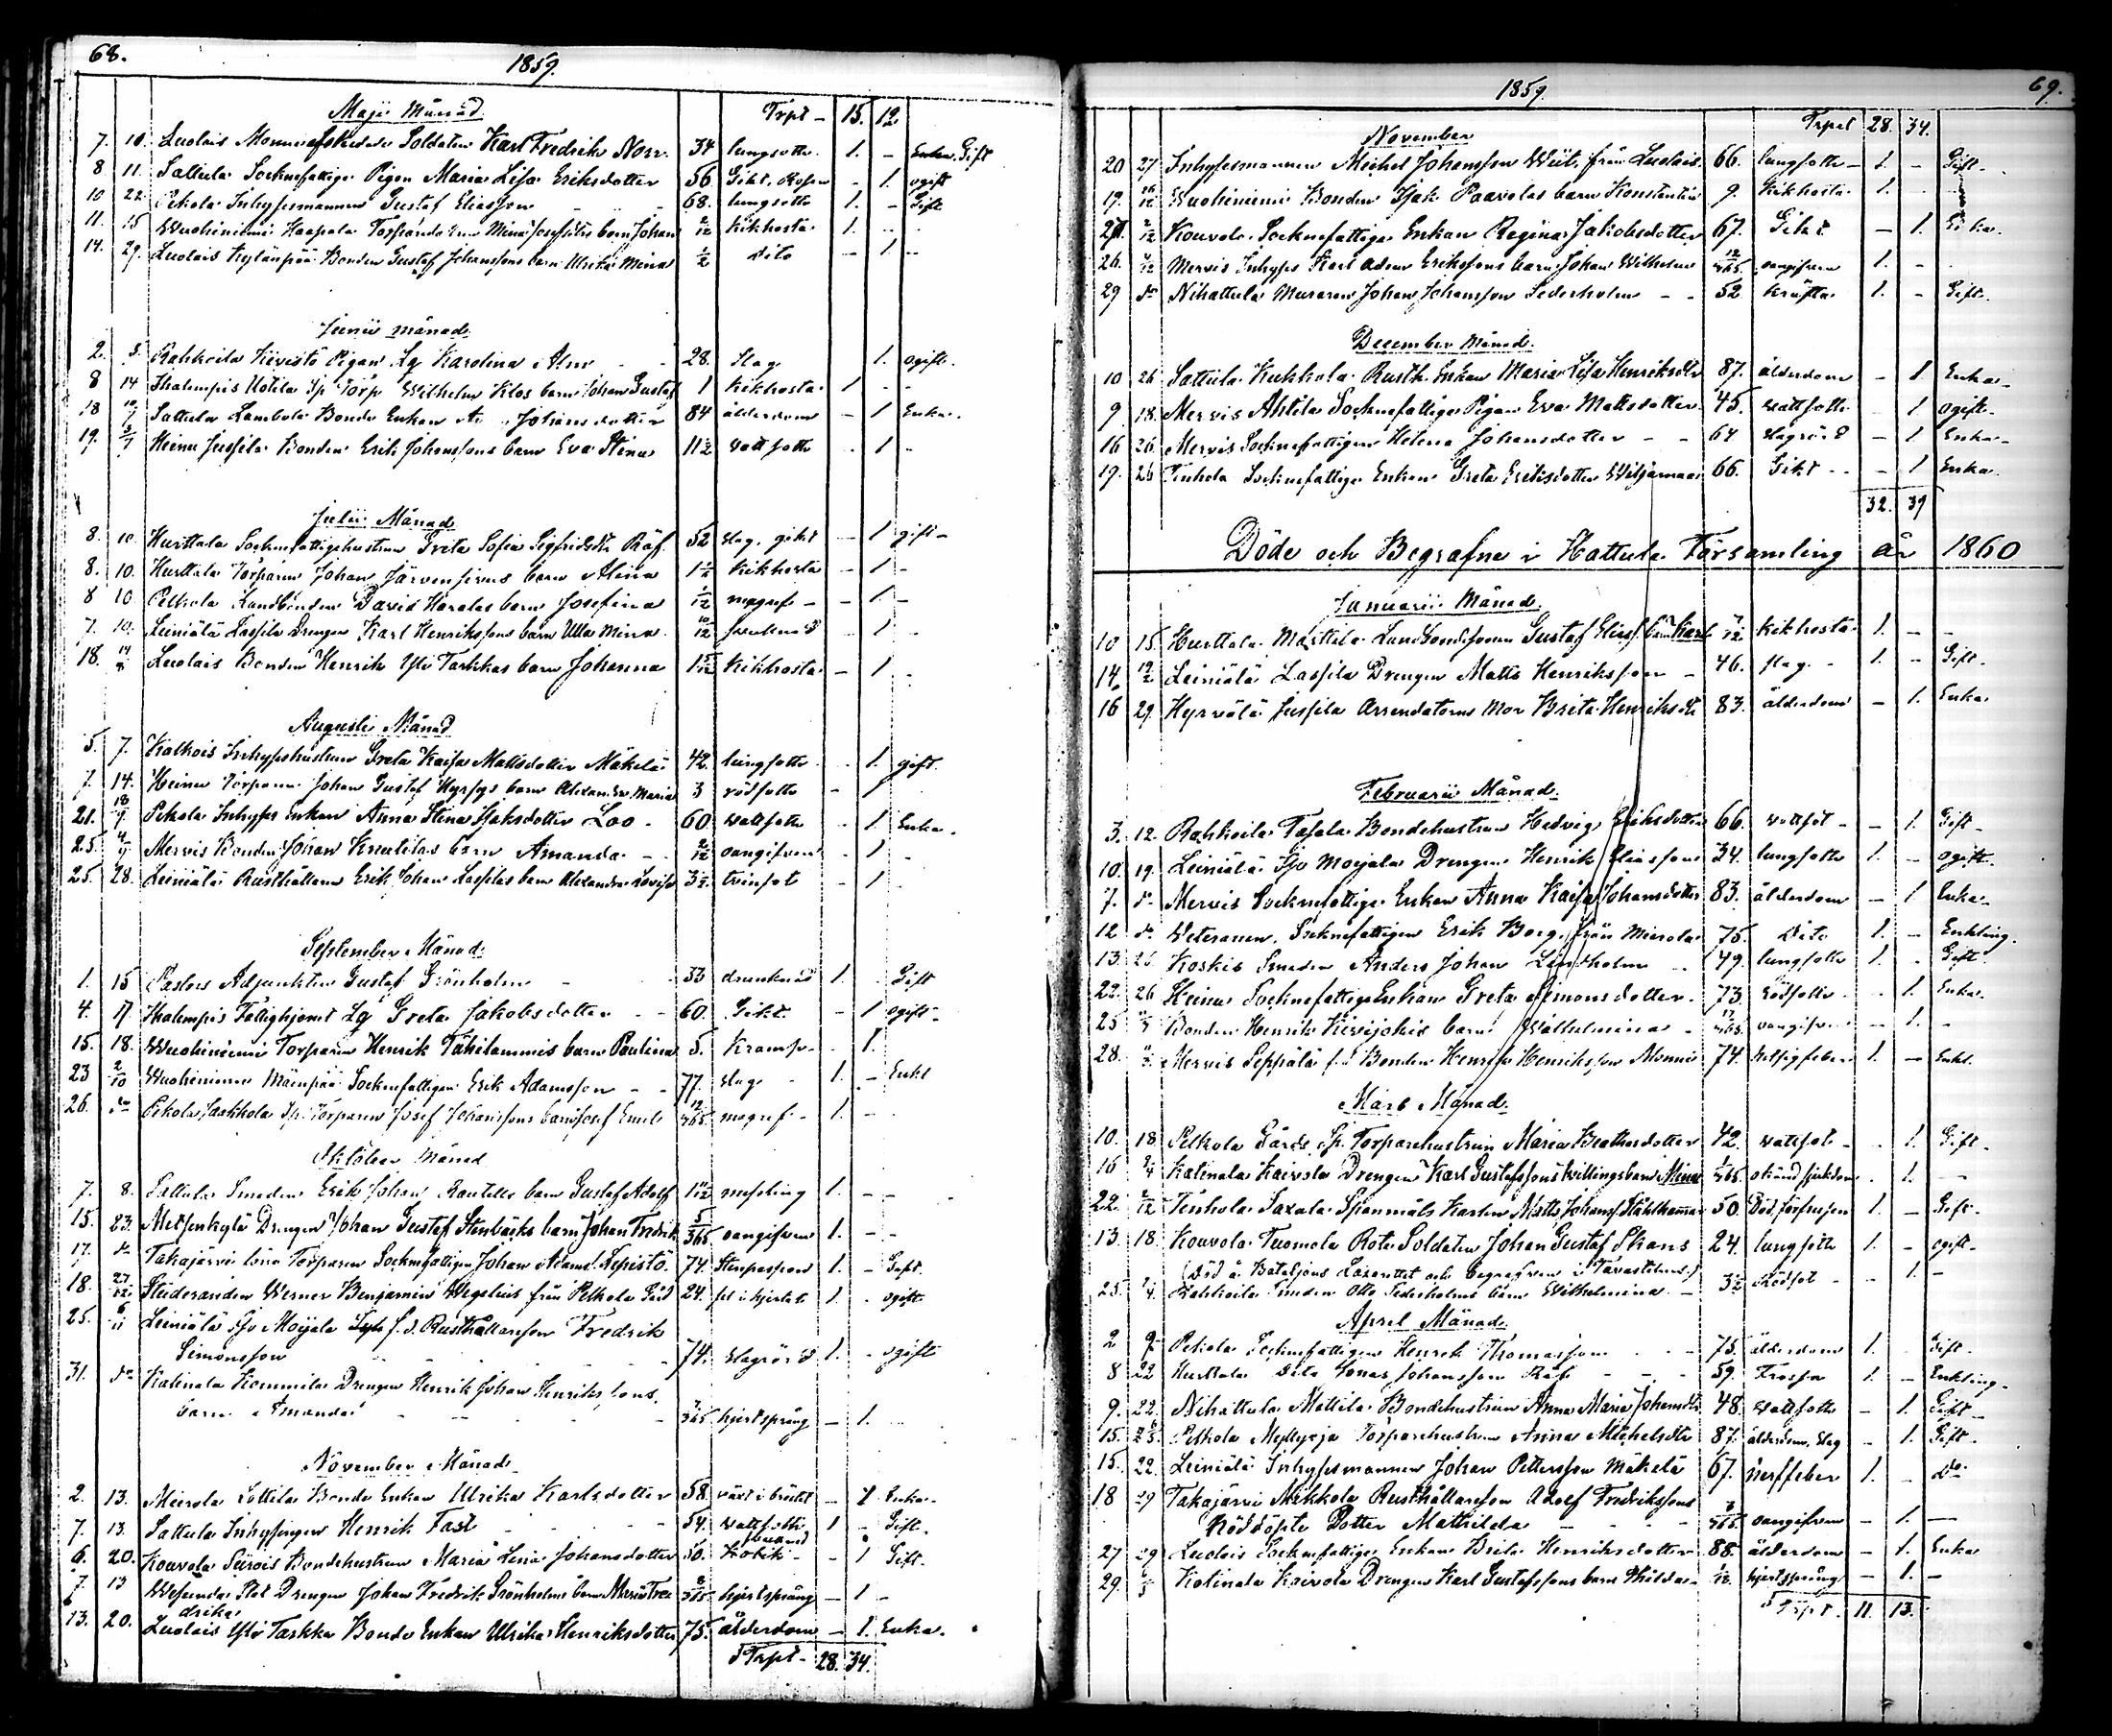 68.
1859.
Maji Månad
Trpt - 15. 12.
7. 10. Luolais Monni Afskedade Soldaten Karl Fredrik Norr. 34 lungsotten. 1. - Gift
8 11. Sattula Socknefattige Pigan Maria Lisa Eriksdotter 56 Gikt, Rosen - 1. ogift
10 22 Pekola Inhysesmannen Gustaf Eliasson 68. lungsotten 1. - Gift
11. 15 Wuohiniemi Haapala Torparedr Mina Josefsdtrs barn Johan 2/12 Kikhosta 1. -
14. 29. Luolais Kylänpää Bonden Gustaf Johanssons barn Ulrika Mina ½ dito - 1. -
Junii månad.
2. 5. Rahkoila Kivistö Pigan Lg Karolina Alm 28. Slag 1. ogift.
8 14 Ihalempis Uotila Sp Torp Wilhelm Klos barn Johan Gustaf 1 Kikhosta 1 - -
18 10/7 Sattula Lambola Bonde Enkan Johansdotter 84 ålderdom - 1 Enka.
19. 3/7 Heinu Jussila Bonden Erik Johanssons barn Eva Stina 11½ Vattsotten - 1 -
Julii Månad
8. 10. Hurttala Socknefattighustrun Greta Sofia Sigfridsdtr Räf. 52 slag, gikt - 1 gift -
8. 10. Hurttala Torparen Johan Järvensivus barn Alina 1½ Kikhosta - 1 -
8 10 Pelkola Landbonden David Haralas barn Josefina 1/12 magref - - 1. -
7. 10. Leiniälä Lassila Drengen Karl Henrikssons barn Ulla Mina. 10/12 - 1 -
18. 14/8 Luolais Bonden Henrik Yli Tarkkas barn Johanna Kikhosta - 1 -
Augusti Månad
5. 7. Katkois Inhyseshustrun Greta Kaisa Mattsdotter Mäkelä 42. lungsotten - 1. gift.
7. 14. Heinu Torparen Johan Gustaf Hyrsys barn Alexandra Maria 3 rödsotten - 1
21. Pekola Inhyses Enkan Anna Stina Isaksdotter Loo - 60 Vattsotten - 1. Enka.
25. 4/9 Mervis Bonden Johan Knuutilas barn Amanda - - 2/12 oangifven - 1 -
25. 28. Leiniälä Rusthållaren Erik Johan Lassilas barn Alexandra Lovisa 3½ tvinsot - 1 -
September Månad.
1. 15 Pastors Adjunkten Gustaf Grönholm 33 drunknad 1. Gift
4. 17. Ihalempis Fattighjonet Lg Greta Jakobsdotter - - 60. Gikt - 1 ogift -
15. 18. Wuohiniemi Torparen Henrik Tähilammis barn Paulina 5. Kramp - - 1.
23 2/10 Wuohiniemi Mäenpää Socknefattigen Erik Adamsson - - 77. slag - 1. - Enkl
26. do Pekola Jaakkola Sp. Torparen Josef Johanssons barn Josef Emil 12/365 magref - 1. -
Oktober Månad
7. 8. Sattula Smeden Erik Johan Rautells barn Gustaf Adolf messling 1. - -
15. 23. Metsänkylä Drengen Johan Gustaf Stenbäcks barn Johan Fredrik 5/365 oangifven 1. - -
17. do Takajärvi Torparen Socknefattigen Johan Adams. Lepistö. 74. Stenpassion 1. - Gift.
18. 27/12 Studeranden Werner Benjamin Wegelius från Pelkola Gård 24. fel i hjertat 1. - ogift
25. 6/11 Leiniälä Iso Moijala f.d. Rusthållaresson Fredrik
Simonsson 74. Slagrörd 1. - ogift
31. do Katinala Kommila Drengen Henrik Johan Henrikssons
barn Amanda - - - 7/365 hjertsprång - 1. -
November Månad
2. 13. Mierola Lottila Bonde Enkan Ulrika Karlsdotter 58. växt i bröstet - 1 Enka.
7. 13. Sattula Inhysingen Henrik Fast 54. Vattsotten 1 - Gift.
6. 20. Kouvola Siirois Bondehustrun Maria Lena Johansdotter 50. Kolik - - 1 Gift.
7. 13 Drengen Johan Fredrik Grönholms barn Maria Fre 8/365 hjertsprång - 1 -
drika
13. 20. Luolais Yli Tarkka Bonde Enkan Ulrika Henriksdotter 75. ålderdom - 1. Enka.
Trpt - 28. 34.
1859.
69.
November
Trpt 28. 34.
20 27 Inhysesmannen Michel Johansson Wiit, från Luolais. 66. lungsotten - 1. - Gift -
19. 26/12 Wuohiniemi Bonden Isak Paavolas barn Konstantin 9. Kikhosta 1. -
27. 2/12 Kouvola Socknefattige Enkan Regina Jakobsdotter 67. Gikt - 1. Enka.
26. 4/12 Mervis Inhyses Karl Adam Erikssons barn Johan Wilhelm 12/365 oangifven 1. -
29 do Nihattula Muraren Johan Johansson Sederholm - - 52 Kräfta 1. - Gift.
December Månad.
10 26 Sattula Kukkola Rusth. Enkan Maria Lisa Henriksdtr 87. ålderdom - 1. Enka -
9 18. Mervis Ahtila Socknefattige Pigan Eva Mattsdotter. 45. Vattsotten - 1. Ogift -
16 26. Mervis Socknefattigen Helena Johansdotter - - 64 slagrörd - 1. Enka -
19. 26 Tenhola Socknefattige Enkan Greta Eriksdotter Wiljamaa 66. Gikt - - - 1 Enka.
32. 39
Döde och Begrafne i Hattula Församling år 1860
Januarii Månad.
10 15. Hurttala Marttila Landbondesonen Gustaf Elias. barn Karl 7/12 Kikhosta 1. - -
14. 12/2 Leiniälä Lassila Drengen Matts Henriksson - 46. slag - 1. - Gift.
16 29. Hyrvälä Jussila Arrendatorns Mor Brita Henriksdtr 83. ålderdom - 1. Enka
Februarii Månad.
3. 12. Rahkoila Tafala Bondehustrun Hedvig Eriksdotter 66. Vattsot - - 1. Gift -
10. 19. Leiniälä Iso Moijala Drengen Henrik Eliasson 34. lungsotten 1. - ogift.
7. do Mervis Socknefattige Enkan Anna Kaisa Johansdotter 83. ålderdom - 1 Enka -
12 do Veteranen, Socknefattigen Erik Borg, från Mierola 75. Dito 1. - Enkling.
13. 26. Koskis Smeden Anders Johan Lindholm - 49. lungsotten 1. - Gift.
22. 26 Heinu Socknefattige Enkan Greta Simonsdotter. 73. rödsotten - 1. Enka.
25 Bonden Henrik Kivijokis barn Wilhelmina - 17/365 oangifven - 1. -
28. Mervis Seppälä f.d. Bonden Henrik Henriksson Monni 74. hetsigfeber 1. - Enkl.
Mars Månad.
10. 18. Pelkola Gårds Sp. Torparehustrun Maria Beathasdotter 42. Vattsot - - 1. Gift.
16 9/4 Katinala Kaivola Drengen Karl Gustafssons tvillingsbarn Mina 1/365 okänd sjukdom - 1. -
22. Tenhola Saxala Spanmåls Karlen Matts Johanss. Ståhlhammar 50. Död förfrusen 1. - Gift.
13. 18. Kouvola Tuomola Rote Soldaten Johan Gustaf Skans 24. lungsotten 1. - ogift -
(Död å Bataljons Lazarettet och begrafven i Tavastehus.)
25. 9/4. Rahkoila Smeden Otto Sederholms barn Wilhelmina - 3½ Rödsot - - 1 -
April Månad.
2 9. Pekola Socknefattigen Henrik Thomasson - - - 75. ålderdom 1. - Gift.
8 22 Hurttala Dito Jonas Johansson Räf - - - 59. Frossa 1. - Enkling.
9. 22. Nihattula Mattila Bondehustrun Anna Maria Johansdtr 48. Vattsotten - 1. Gift -
15. 6/5. Pelkola Myllyoja Torparehustrun Anna Michelsdtr 87. ålderdom, slag - 1. Gift -
15. 22. Leiniälä Inhysesmannen Johan Pettersson Mäkelä 67. nerffeber 1. - do
18 29 Takajärvi Mikkola Rusthållareson Adolf Fredrikssons
Nöddöpte Dotter Mathilda - - 8/365. oangifven - 1. -
27 29 Luolais Socknefattige Enkan Brita Henriksdotter 88. ålderdom - 1. Enka
29. 6/5 Katinala Kaivola Drengen Karl Gustafssons barn Hilda - hjertsprång - 1. -
Trpt. 11. 13.